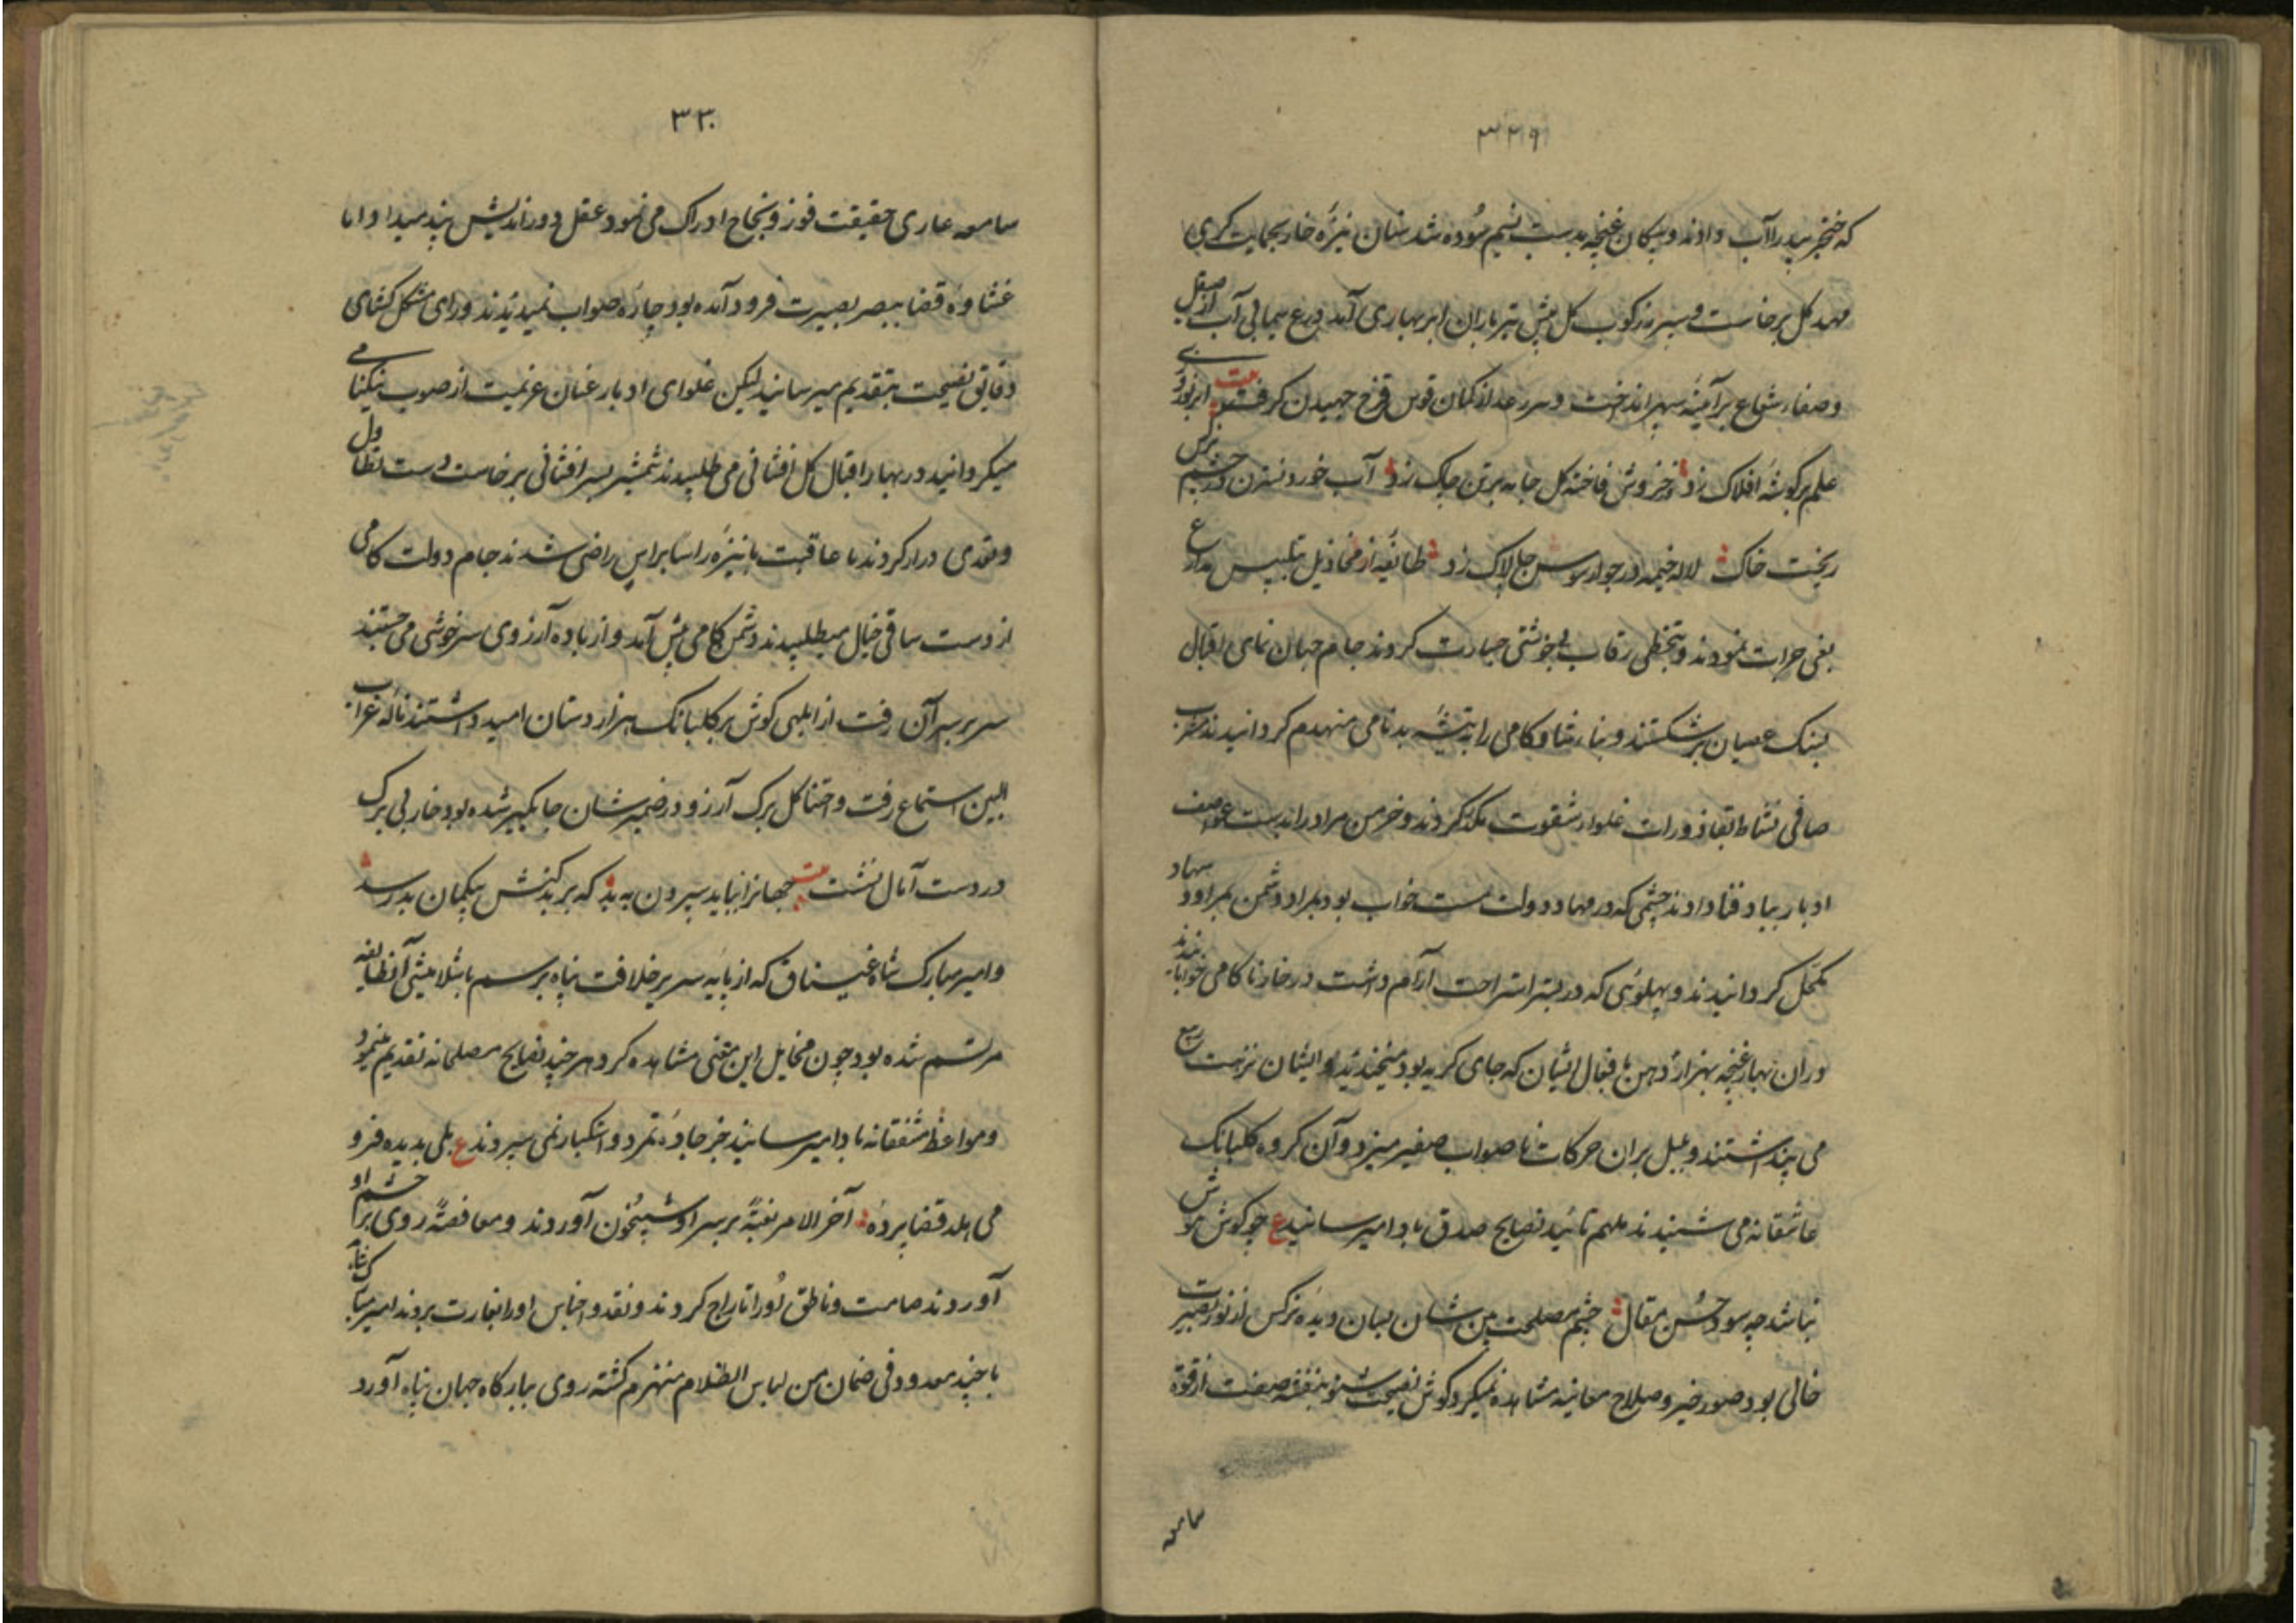 ۳۲۹
که خنجر بید را آب دادند و پیکان غنچه بدست نسیم سوده شد سنان نیزهٔ خار بحمایت کری
مهد کل برخاست و سپر زرکوب کل پیش تیر باران ابر بهاری آمد درع سیمابی آب از صیقل
وصفاء شعاع برآمیزه سپر انداخت و سر رعد از کمان قوس قزح جهیدن کرفت بیت ابر نوروزی
علم بر کوشهٔ افلاک زد وز خروش فاخته کل جامه بر تن چاک زد آب خورد نسترن در چشم نرکس
ریخت خاک لاله خیمه در جوار سوسن چالاک زد طائفهٔ از مخاذیل بتلبیس مدارع
بغی جرات نمودند و بتخطی رقاب بی خوشتی جسارت کردند جام جهان نمای اقبال
بسنک عصیان برشکستند و بناء شادکامی را بتیشهٔ بدنامی منهدم کردانیدند مشرب
صافی نشاط بقاذورات غلواء شقوت مکدر کردند و خرمن مراد را بدست عواصف
ادبار بباد فنا دادند چشمی که در مهاد دولت مست خواب بود بمراد دشمن بمراود سهاد
مکحل کردانیدند و پهلوئی که در بستر استراحت آرام داشت در خار ناکامی خوابانیدند
دران بهار غنچه بهزار دهن بر افعال ایشان که جای کریه بود میخندید و ایشان نزهت ربیع
می پنداشتند و بلبل بران حرکات ناصواب صفیر میزد و آن کروه کلبانک
عاشقانه می شنیدند ملهم تائید نصایح صدق بادا میرسانید ع چو کوش هوش
نباشد چه سود حسن مقال چشم مصلحت بین شان بسان دیدهٔ نرکس از نور بصیرت
خالی بود صور خیر و صلاح معاینه مشاهده نمیکرد کوش نصیحت شنو بنفشه صفت از قوهٔ
سامعه
۳۳۰
سامعه عاری حقیقت فوز و نجاح ادراک می نمود عقل دوراندیش پند میداد اما
غشاوهٔ قضا ببصر بصیرت فرود آمده بود چارهٔ صواب نمیدیدند و رای مشکل کشای
دقایق نصیحت بتقدیم میرسانید لیکن غلوای ادبار عنان عزیمت از صوب نیکنامی
میکردانید در بهار اقبال کل افشانی می طلبیدند شمشیر بسر افشانی برخاست دست تطاول
وتعدی دراز کردند تا عاقبت با نیزه راسا براس راضی شدند جام دولت کامی
از دست ساقی خیال میطلبیدند دشمن کامی پیش آمد و از باده آرزوی سرخوشی می جستند
سر بر سر آن رفت از ابلهی کوش بر کلبانک هزار دستان امید داشتند نالهٔ غراب
البین استماع رفت و احتناکل برک آرزو در ضمیرشان جایکیر شده بود خار بی برکی
در دست آمال نشست بیت جهانرا نباید سپردن به بد که بر بدکنش بیکمان بد رسد
وامیر مبارک شاه غیساق که از پایه سریر خلافت پناه برسم باشلامیشی آنطایفه
مرتسم شده بود چون مخایل این معنی مشاهده کرد هر چند نصایح مصلحانه تقدیم مینمود
ومواعظ مشفقانه بادا میرسانید جز جادهٔ تمرد و استکبار نمی سپردند ع بلی بدیده فرو
می هلد قضا پرده آخر الامر بغتهً بر سر او شبیخون آوردند و معافصهً روی بر چشم او
آوردند صامت و ناطق او را تاراج کردند و نقد و اجناس او را بغارت بردند امیر مبارکشاه
با چند معدود فی ضمان من لباس الظلام منهزم کشته روی ببارکاه جهان پناه آورد